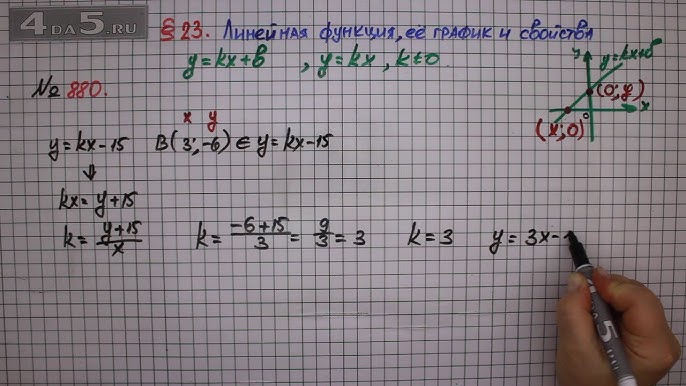 4DA5.RU
§ 23. Линейная функция, её график и свойства
y = kx + b , y = kx , k ≠ 0.
№ 880.
y
y = kx + b
(0; y)
x
(x; 0)
0
x y
y = kx - 15 B(3; -6) ∈ y = kx - 15
⇓
kx = y + 15
k = \frac{y+15}{x} k = \frac{-6+15}{3} = \frac{9}{3} = 3 k = 3 y = 3x -
5